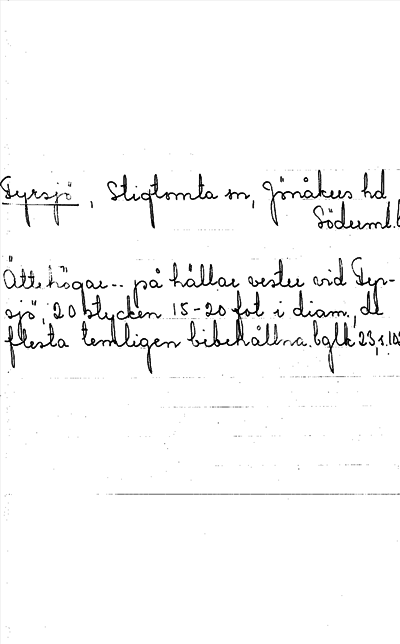 Tyrsjö, Stigtomta sn, Jönåkers hd
Söderml.
Ättehögar.. på hällar vester vid Tyr-
sjö, 20 stycken 15-20 fot i diam., de
flesta temligen bibehållna. bglk 23, s. 103